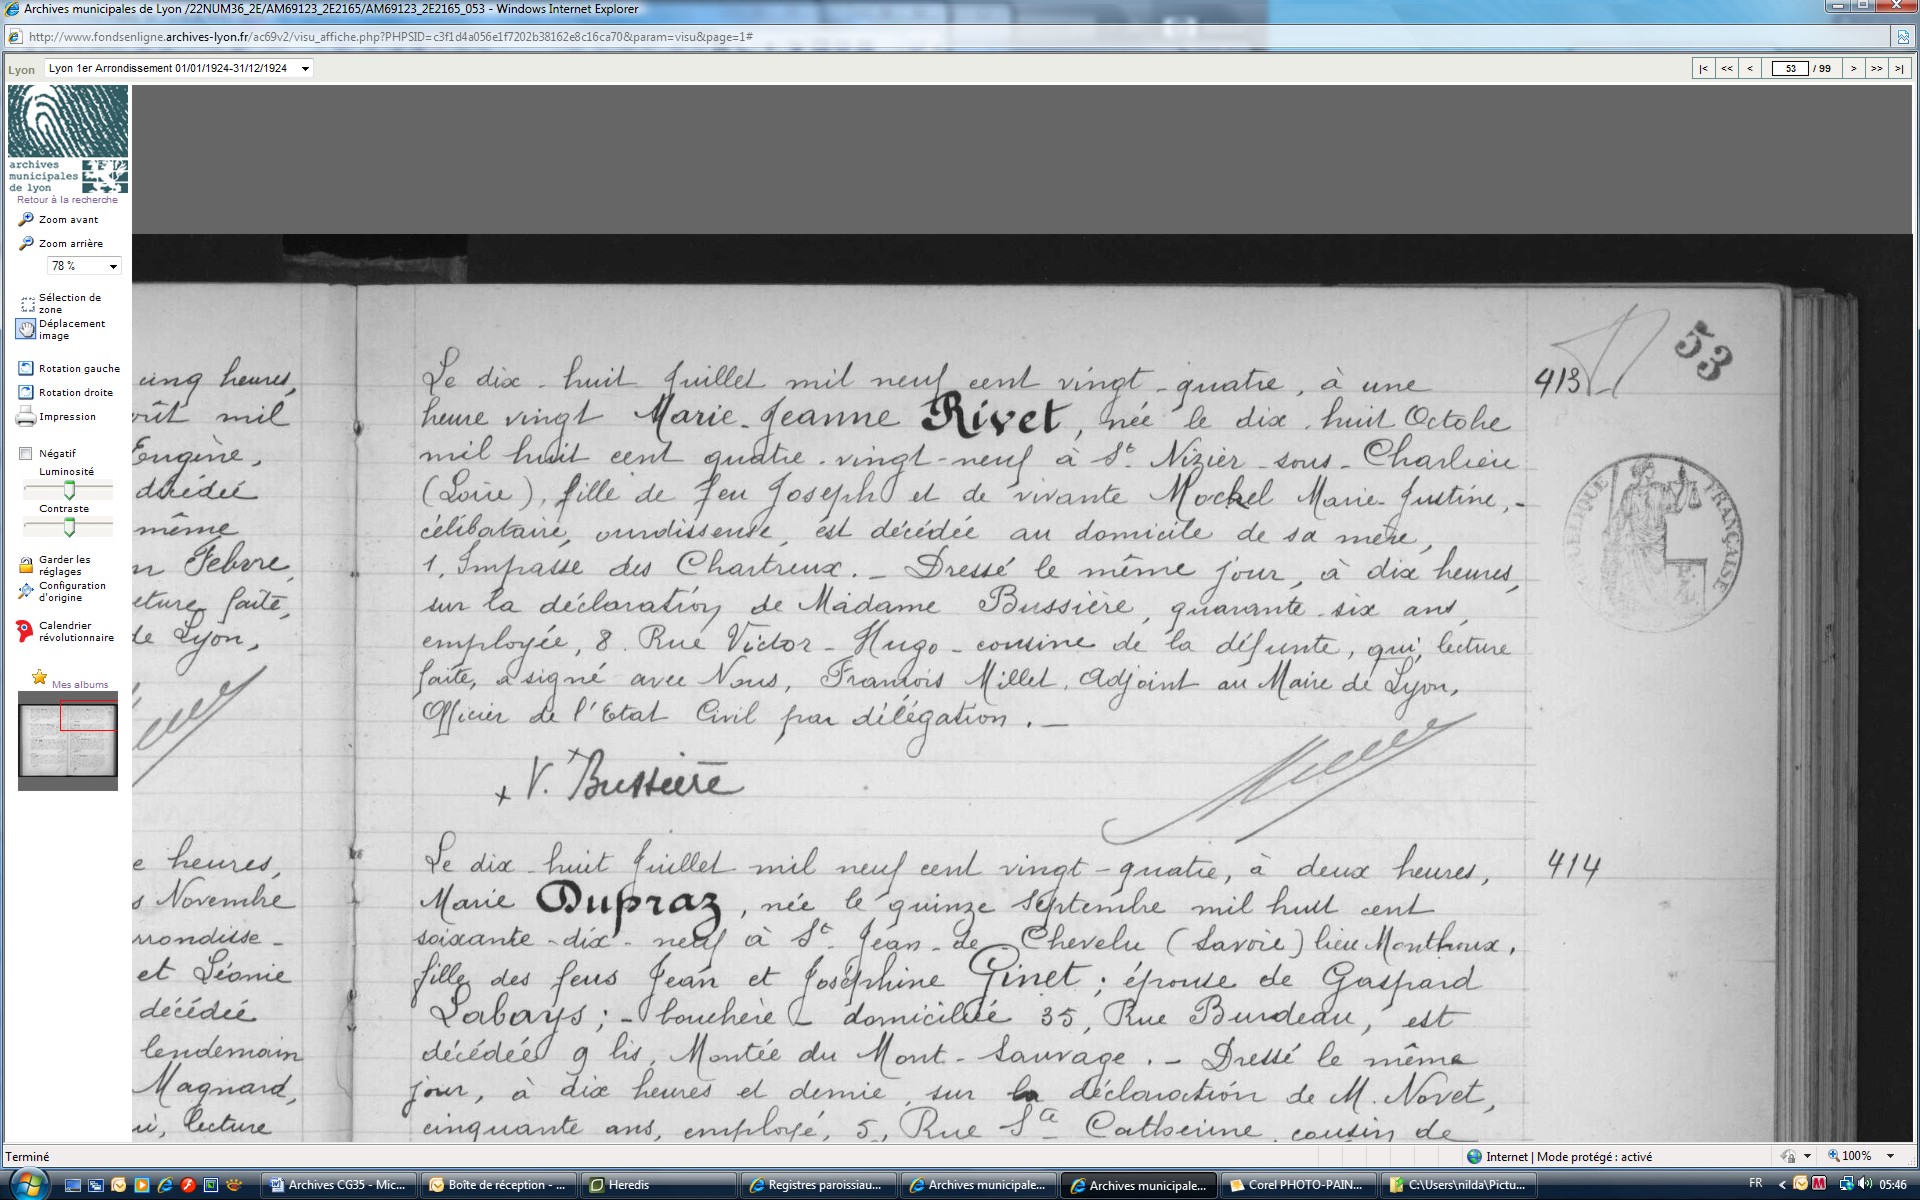 Archives municipales de Lyon /22NUM36_2E/AM69123_2E2165/AM69123_2E2165_053 - Windows Internet Explorer
http://www.fondsenligne.archives-lyon.fr/ac69v2/visu_affiche.php?PHPSID=c3f1d4a056e1f7202b38162e8c16ca70&param=visu&page=1#
Lyon
Lyon 1er Arrondissement 01/01/1924-31/12/1924
|< << < 53 / 99 > >> >|
archives
municipales
de lyon
Retour à la recherche
Zoom avant
Zoom arrière
78 %
Sélection de
zone
Déplacement
image
Rotation gauche
Rotation droite
Impression
Négatif
Luminosité
Contraste
Garder les
réglages
Configuration
d'origine
Calendrier
révolutionnaire
Mes albums
cinq heures,
oût mil
Eugène,
décédée
même
Febvre,
cture faite,
de Lyon,
e heures,
s Novembre
rrondisse-
et Léonie
décédée
lendemain
Magnard,
ui, lecture
53
413
Le dix-huit Juillet mil neuf cent vingt-quatre, à une
heure vingt Marie-Jeanne Rivet, née le dix-huit Octobre
mil huit cent quatre-vingt-neuf à St. Nizier-sous-Charlieu
(Loire), fille de feu Joseph et de vivante Mockel Marie-Justine,-
célibataire, ourdisseuse, est décédée au domicile de sa mère,
1, Impasse des Chartreux.- Dressé le même jour, à dix heures,
sur la déclaration de Madame Bussière, quarante-six ans,
employée, 8, Rue Victor-Hugo-cousine de la défunte, qui, lecture
faite, a signé avec Nous, François Millet, Adjoint au Maire de Lyon,
Officier de l'Etat Civil par délégation.-
V. Bussière
RÉPUBLIQUE FRANÇAISE
414
Le dix-huit Juillet mil neuf cent vingt-quatre, à deux heures,
Marie Dupraz, née le quinze Septembre mil huit cent
soixante-dix-neuf à St. Jean-de Chevelu (Savoie) lieu Monthoux,
fille des feus Jean et Joséphine Ginet; épouse de Gaspard
Labays;- bouchère - domiciliée 35, Rue Burdeau, est
décédée 9 bis, Montée du Mont-Sauvage.- Dressé le même
jour, à dix heures et demie, sur la déclaration de M. Novet,
cinquante ans, employé, 5, Rue Ste Catherine, cousin de
Terminé
Internet | Mode protégé : activé
100%
Archives CG35 - Mic...
Boîte de réception - ...
Heredis
Registres paroissiau...
Archives municipale...
Archives municipale...
Corel PHOTO-PAIN...
C:\Users\nilda\Pictu...
FR
05:46